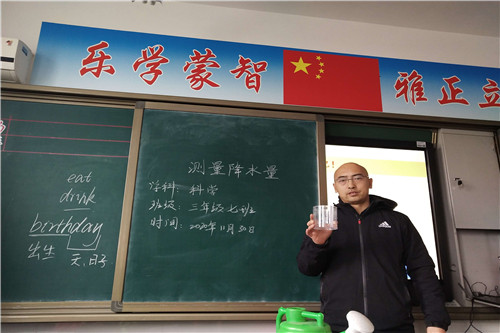 乐学蒙智
雅正立
测量降水量
学科: 科学
班级: 三年级七班
时间: 2020年11月30日
eat
drink
birthday
出生 天,日子
adidas